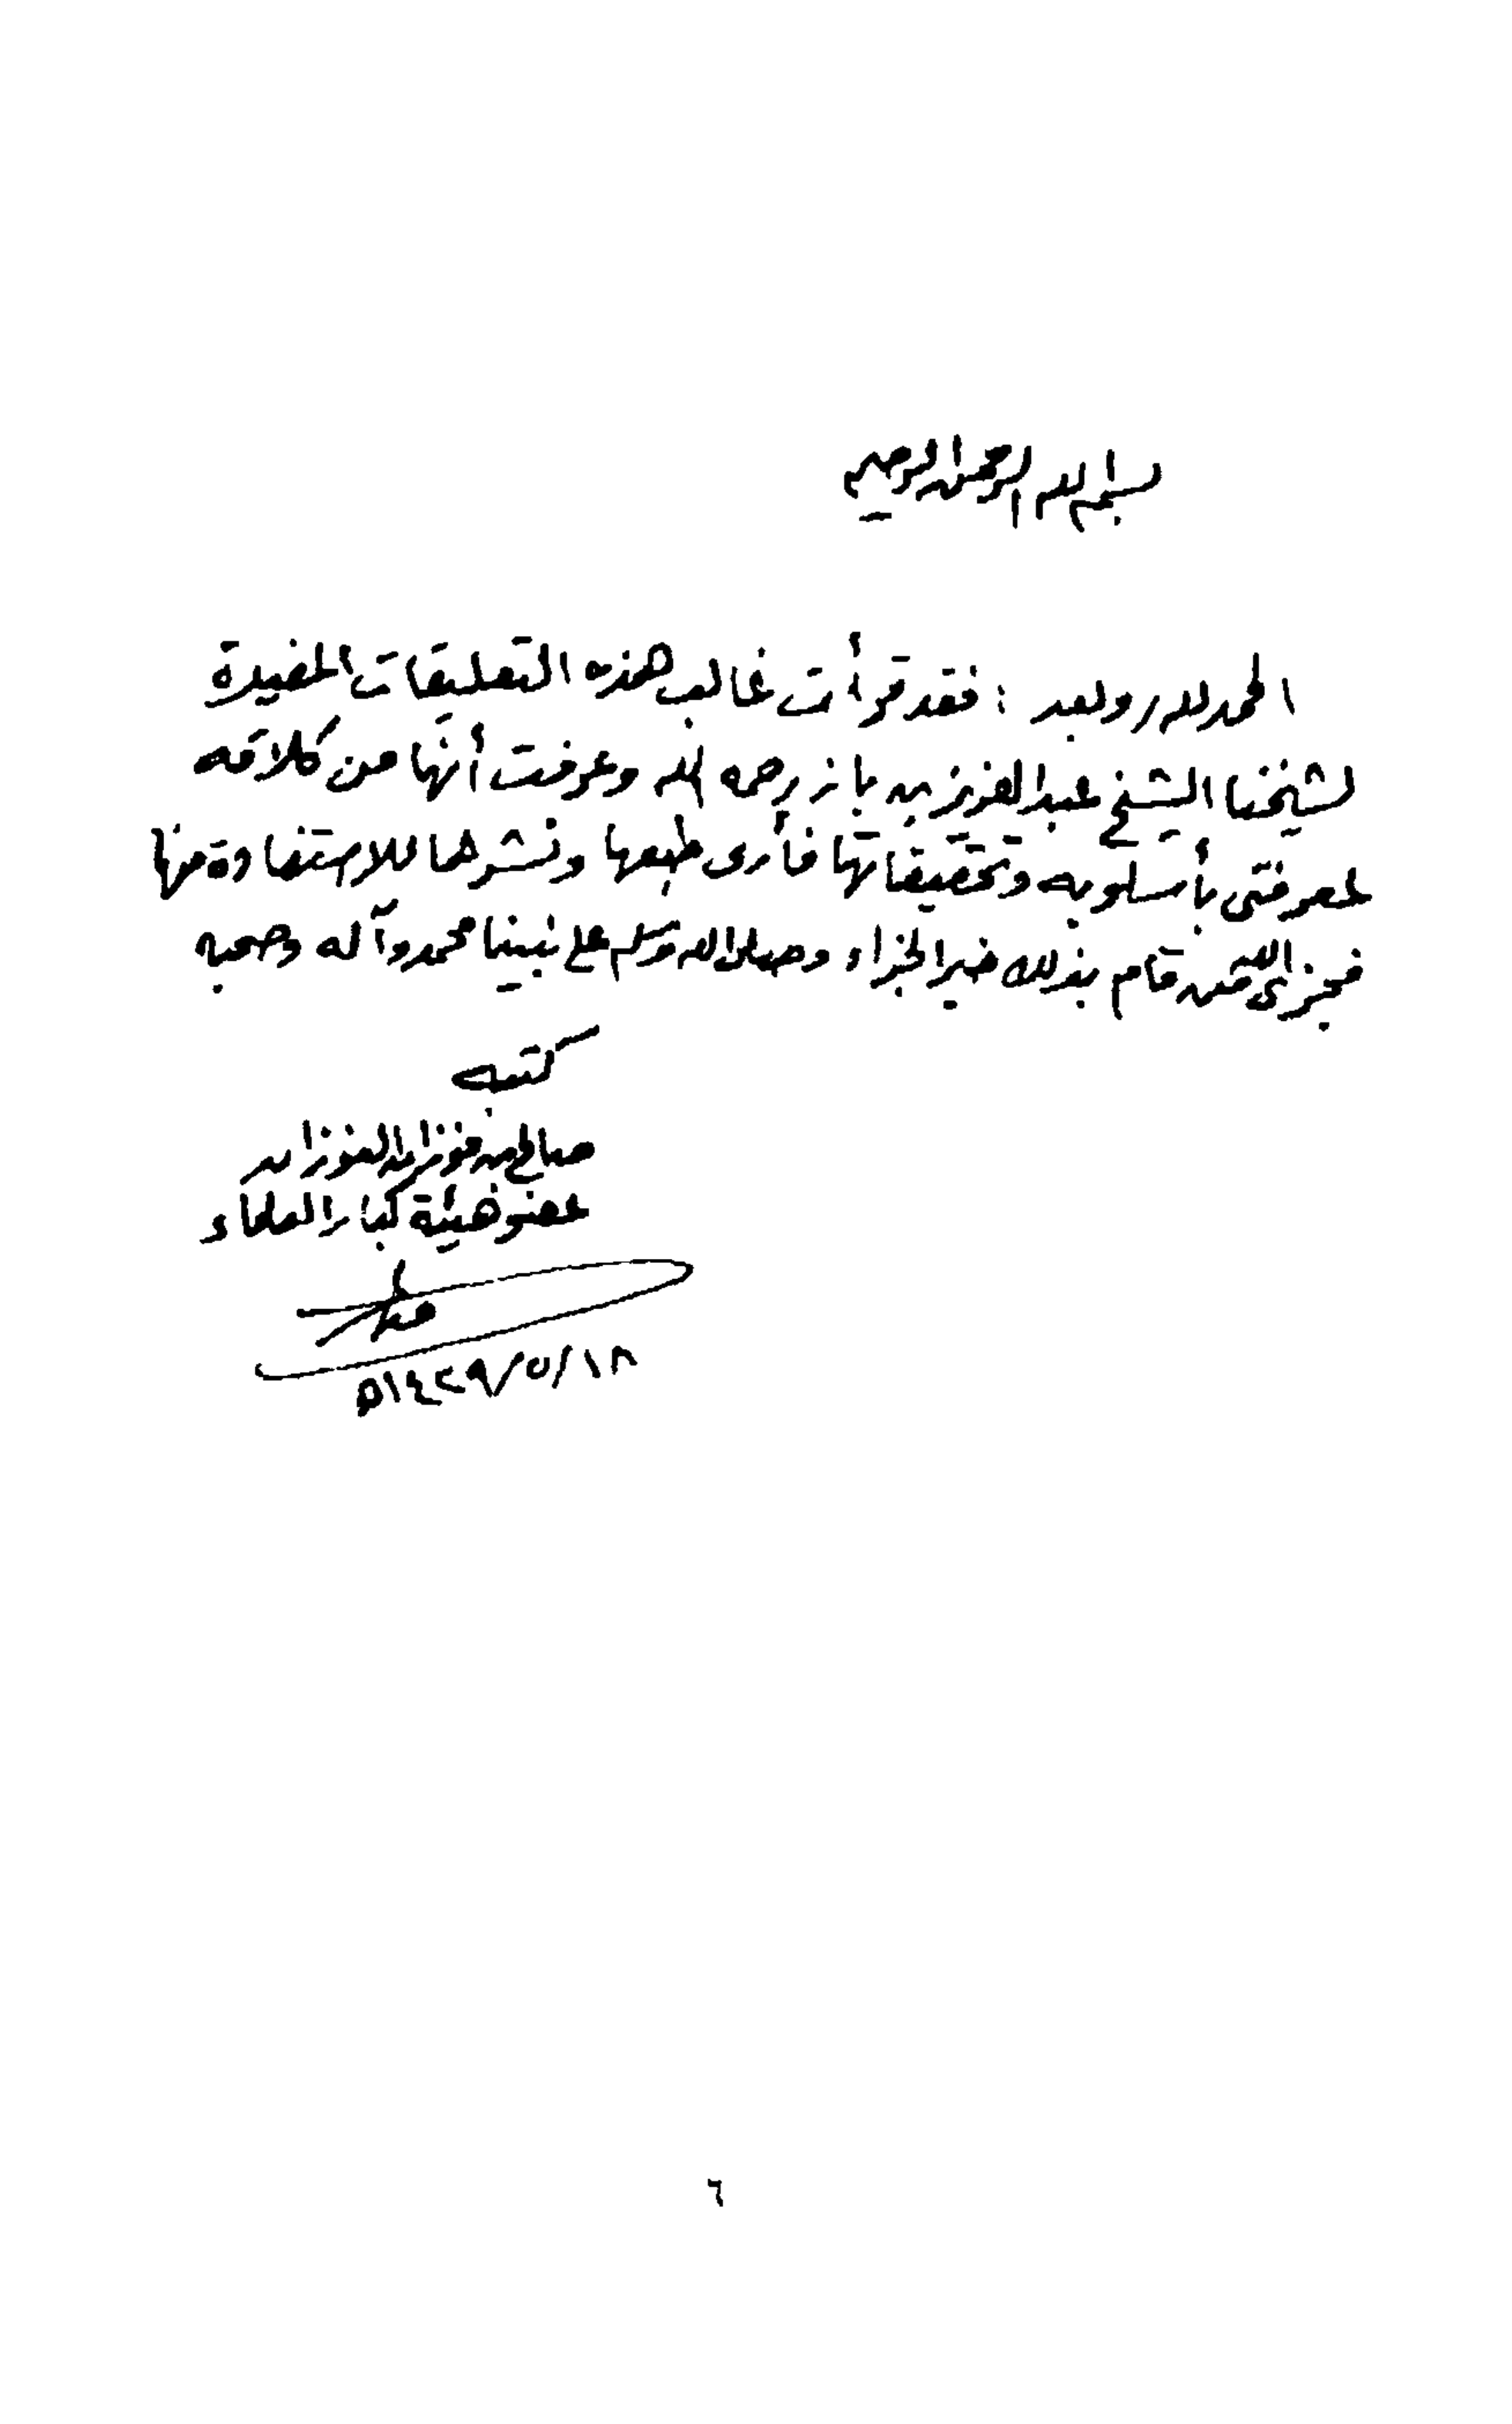 بسم الله الرحمن الرحيم
الحمد لله وبعد : فقد قرأت غالب هذه التعليقات المفيدة
لشيخنا الشيخ عبد العزيز بن باز رحمه الله وعرفت أنها من كلامه
لمعرفتي بأسلوبه وتحقيقاتها فأرى طبعها ونشرها للاستفادة منها
فجزى الله من قام بذلك خير الجزاء وصلى الله وسلم على نبينا محمد وآله وصحبه
كتبه
صالح بن فوزان الفوزان
عضو هيئة كبار العلماء
١٨/٥/١٤٢٩هـ
٦